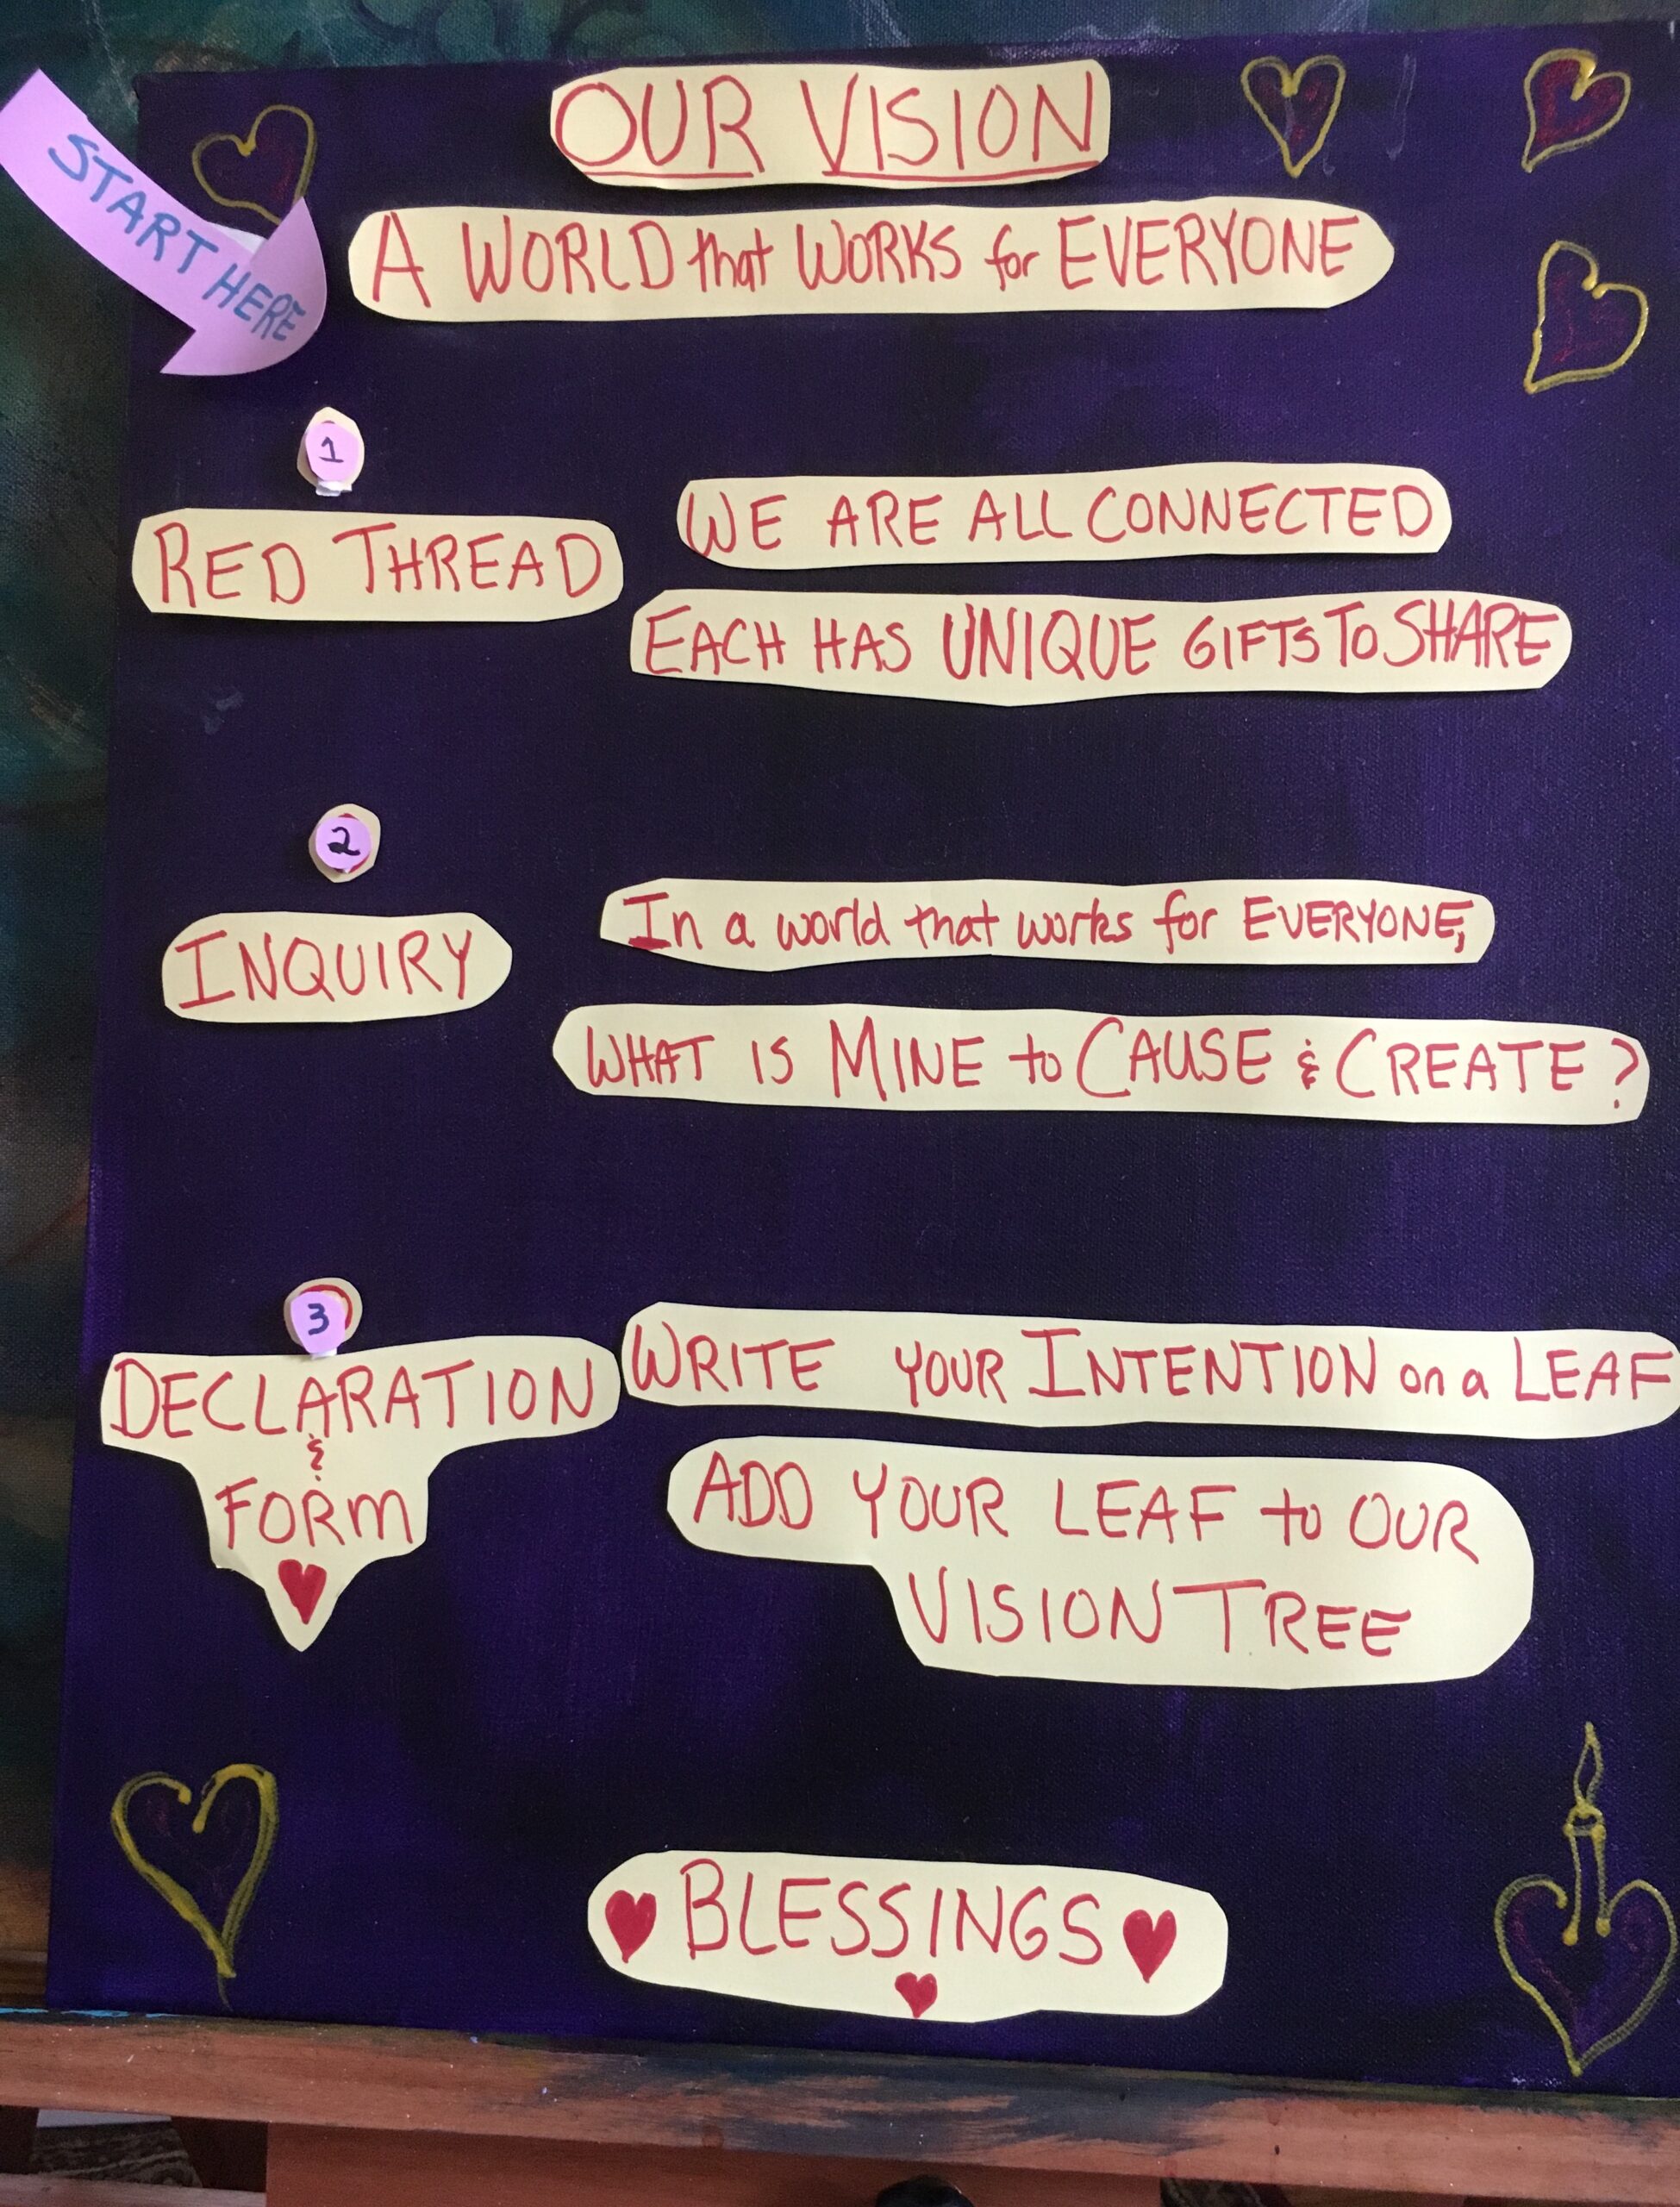 OUR VISION
START HERE
A WORLD that WORKS for EVERYONE
1
RED THREAD
WE ARE ALL CONNECTED
EACH HAS UNIQUE GIFTS TO SHARE
2
INQUIRY
In a world that works for EVERYONE,
WHAT IS MINE to CAUSE & CREATE?
3
DECLARATION
&
FORM
WRITE YOUR INTENTION on a LEAF
ADD YOUR LEAF to OUR
VISION TREE
BLESSINGS